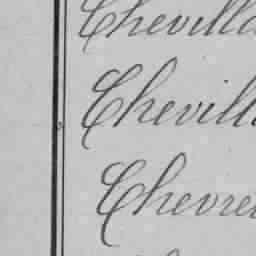 Chevilla
Chevill
Chevre